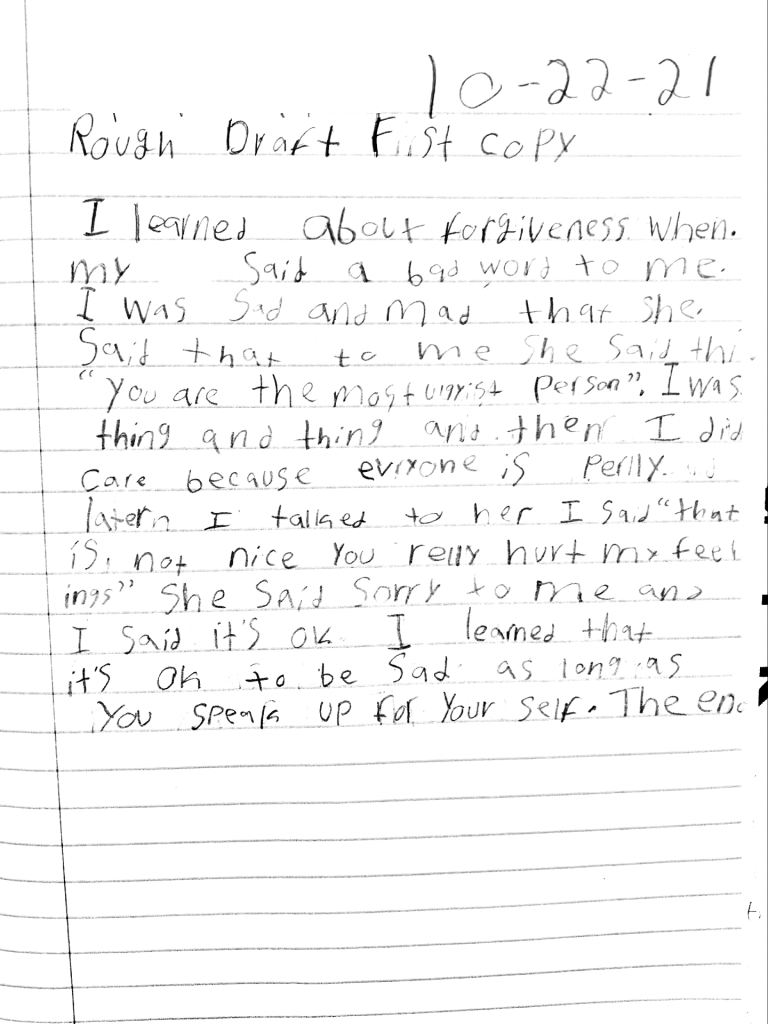 10-22-21
Rough Draft First copy
I learned about forgiveness when.
my said a bad word to me.
I was Sad and Mad that she.
Said that to me She Said thi
"You are the most ugrist person". I was
thing and thing and then I did
Care because evryone is perlly.
latern I talked to her I Said "that
is, not nice you relly hurt my feel
ings" She Said Sorry to me and
I Said it's ok I learned that
it's Ok to be Sad as long as
You speak up for your self. The end